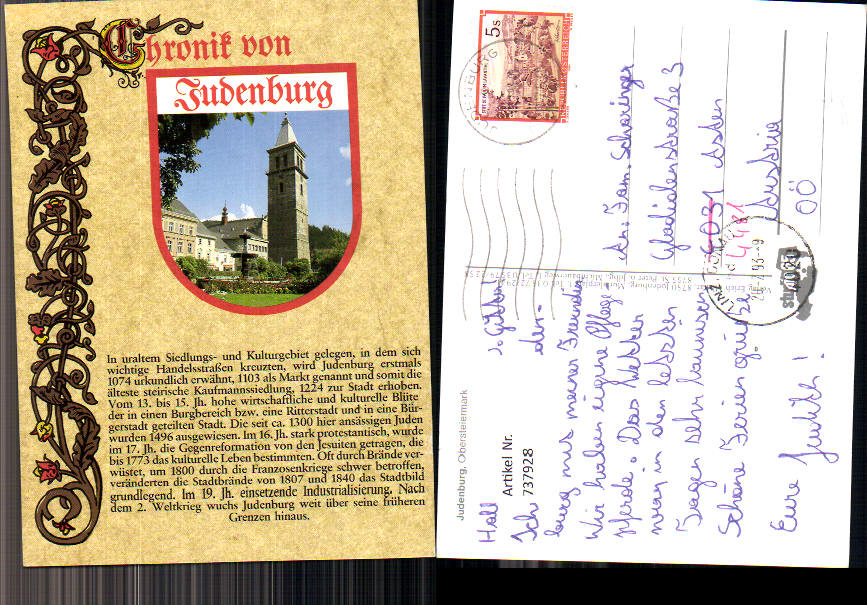 Chronik von
Judenburg
In uraltem Siedlungs- und Kulturgebiet gelegen, in dem sich
wichtige Handelsstraßen kreuzten, wird Judenburg erstmals
1074 urkundlich erwähnt, 1103 als Markt genannt und somit die
älteste steirische Kaufmannssiedlung, 1224 zur Stadt erhoben.
Vom 13. bis 15. Jh. hohe wirtschaftliche und kulturelle Blüte
der in einen Burgbereich bzw. eine Ritterstadt und in eine Bür-
gerstadt geteilten Stadt. Die seit ca. 1300 hier ansässigen Juden
wurden 1496 ausgewiesen. Im 16. Jh. stark protestantisch, wurde
im 17. Jh. die Gegenreformation von den Jesuiten getragen, die
bis 1773 das kulturelle Leben bestimmten. Oft durch Brände ver-
wüstet, um 1800 durch die Franzosenkriege schwer betroffen,
veränderten die Stadtbrände von 1807 und 1840 das Stadtbild
grundlegend. Im 19. Jh. einsetzende Industrialisierung. Nach
dem 2. Weltkrieg wuchs Judenburg weit über seine früheren
Grenzen hinaus.
Judenburg, Obersteiermark
Artikel Nr.
737928
Ich
burg mit meiner Freundin
Wir haben eigene Pflege
pferde. Das Wetter
war in den letzten
Tagen sehr
Schöne Feriengrüße
Eure Judith!
5 S
REPUBLIK ÖSTERREICH
JUDENBURG
An: Fam.
Gladiolenstraße 3
4031 Asten
4481
Austria
OÖ
4020